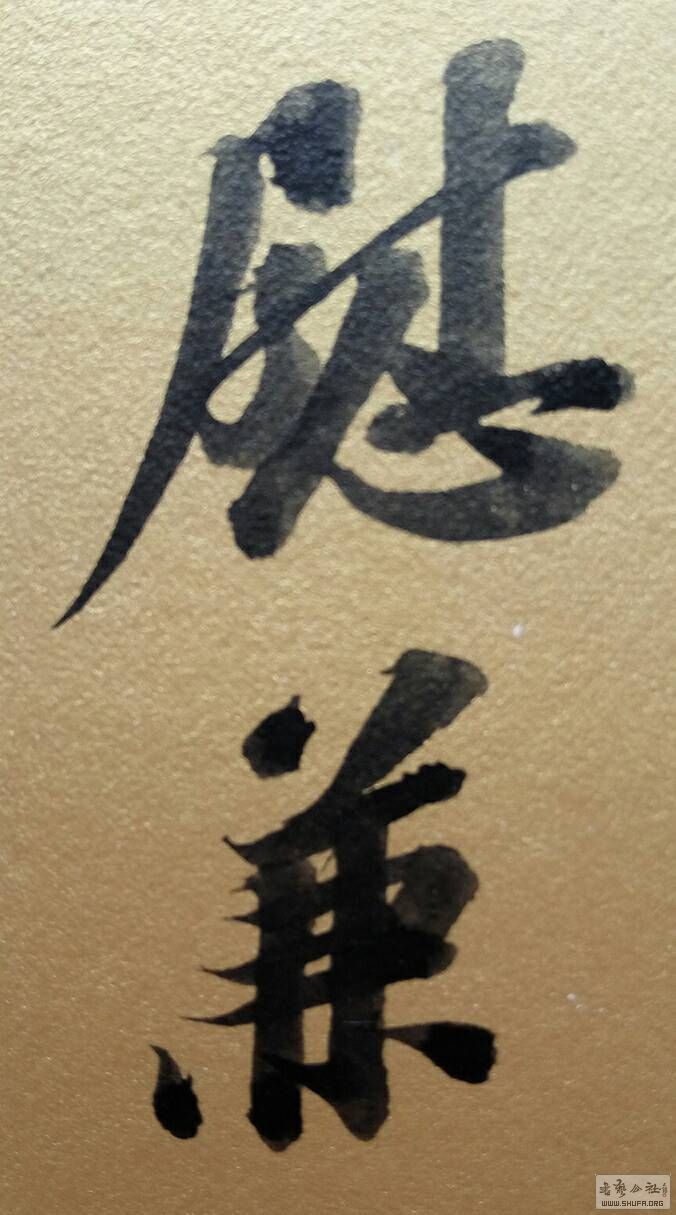 慰
兼
书艺公社
WWW.SHUFA.ORG